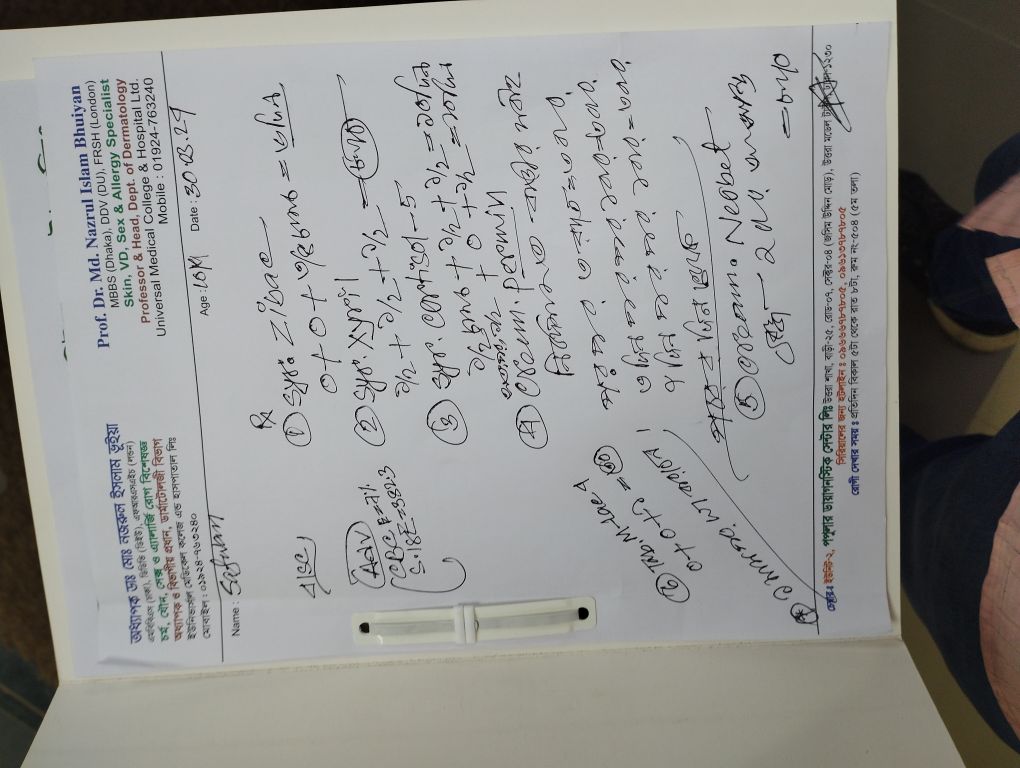 অধ্যাপক ডাঃ মোঃ নজরুল ইসলাম ভূইয়া
এমবিবিএস (ঢাকা), ডিডিভি (ডিইউ), এফআরএসএইচ (লন্ডন)
চর্ম, যৌন, সেক্স ও এ্যালার্জি রোগ বিশেষজ্ঞ
অধ্যাপক ও বিভাগীয় প্রধান, ডার্মাটোলজী বিভাগ
ইউনিভার্সাল মেডিকেল কলেজ এন্ড হাসপাতাল লিঃ
মোবাইল : ০১৯২৪-৭৬৩২৪০
Prof. Dr. Md. Nazrul Islam Bhuiyan
MBBS (Dhaka), DDV (DU), FRSH (London)
Skin, VD, Sex & Allergy Specialist
Professor & Head, Dept. of Dermatology
Universal Medical College & Hospital Ltd.
Mobile : 01924-763240
Name : Safwan
Age :
Date : 30.03.24
Adv
CBC E=7%
S.IgE=382.3
Rx
① Syr. Zibac
0 + 0 +
② Syr. Xyril
১/২ + ১/২ + ১/২ =
③ Syr. Cortisol-5
১/২ চামচ + ১/২ + ১/২ = ১০ দিন
১/২ + 0 + ১/২ = ১০ দিন
④ Cream. Permin
পর পর ৩ রাত = ৩ বার
৩ দিন পর পর ১ বার = ৩ বার
৭ দিন পর পর ১ বার = ৩ বার
⑤ Cream. Neobet
২ বার
⑥ Tab. M-lac 4
0 + 0 + ১ = ৩০
১ মাস পর
চেম্বার ঃ ইউনিট-২, পপুলার ডায়াগনস্টিক সেন্টার লিঃ উত্তরা শাখা, বাড়ী-২৫, রোড-০৭, সেক্টর-০৪ (জসিম উদ্দিন মোড়), উত্তরা মডেল টাউন, ঢাকা-১২৩০
সিরিয়ালের জন্য হটলাইন ঃ ০৯৬৬৬৭৮৭৮০৫, ০৯৬১৩৭৮৭৮০৫
রোগী দেখার সময় ঃ প্রতিদিন বিকাল ৫টা থেকে রাত ৮টা, রুম নং-৫০৪ (৫ম তলা)